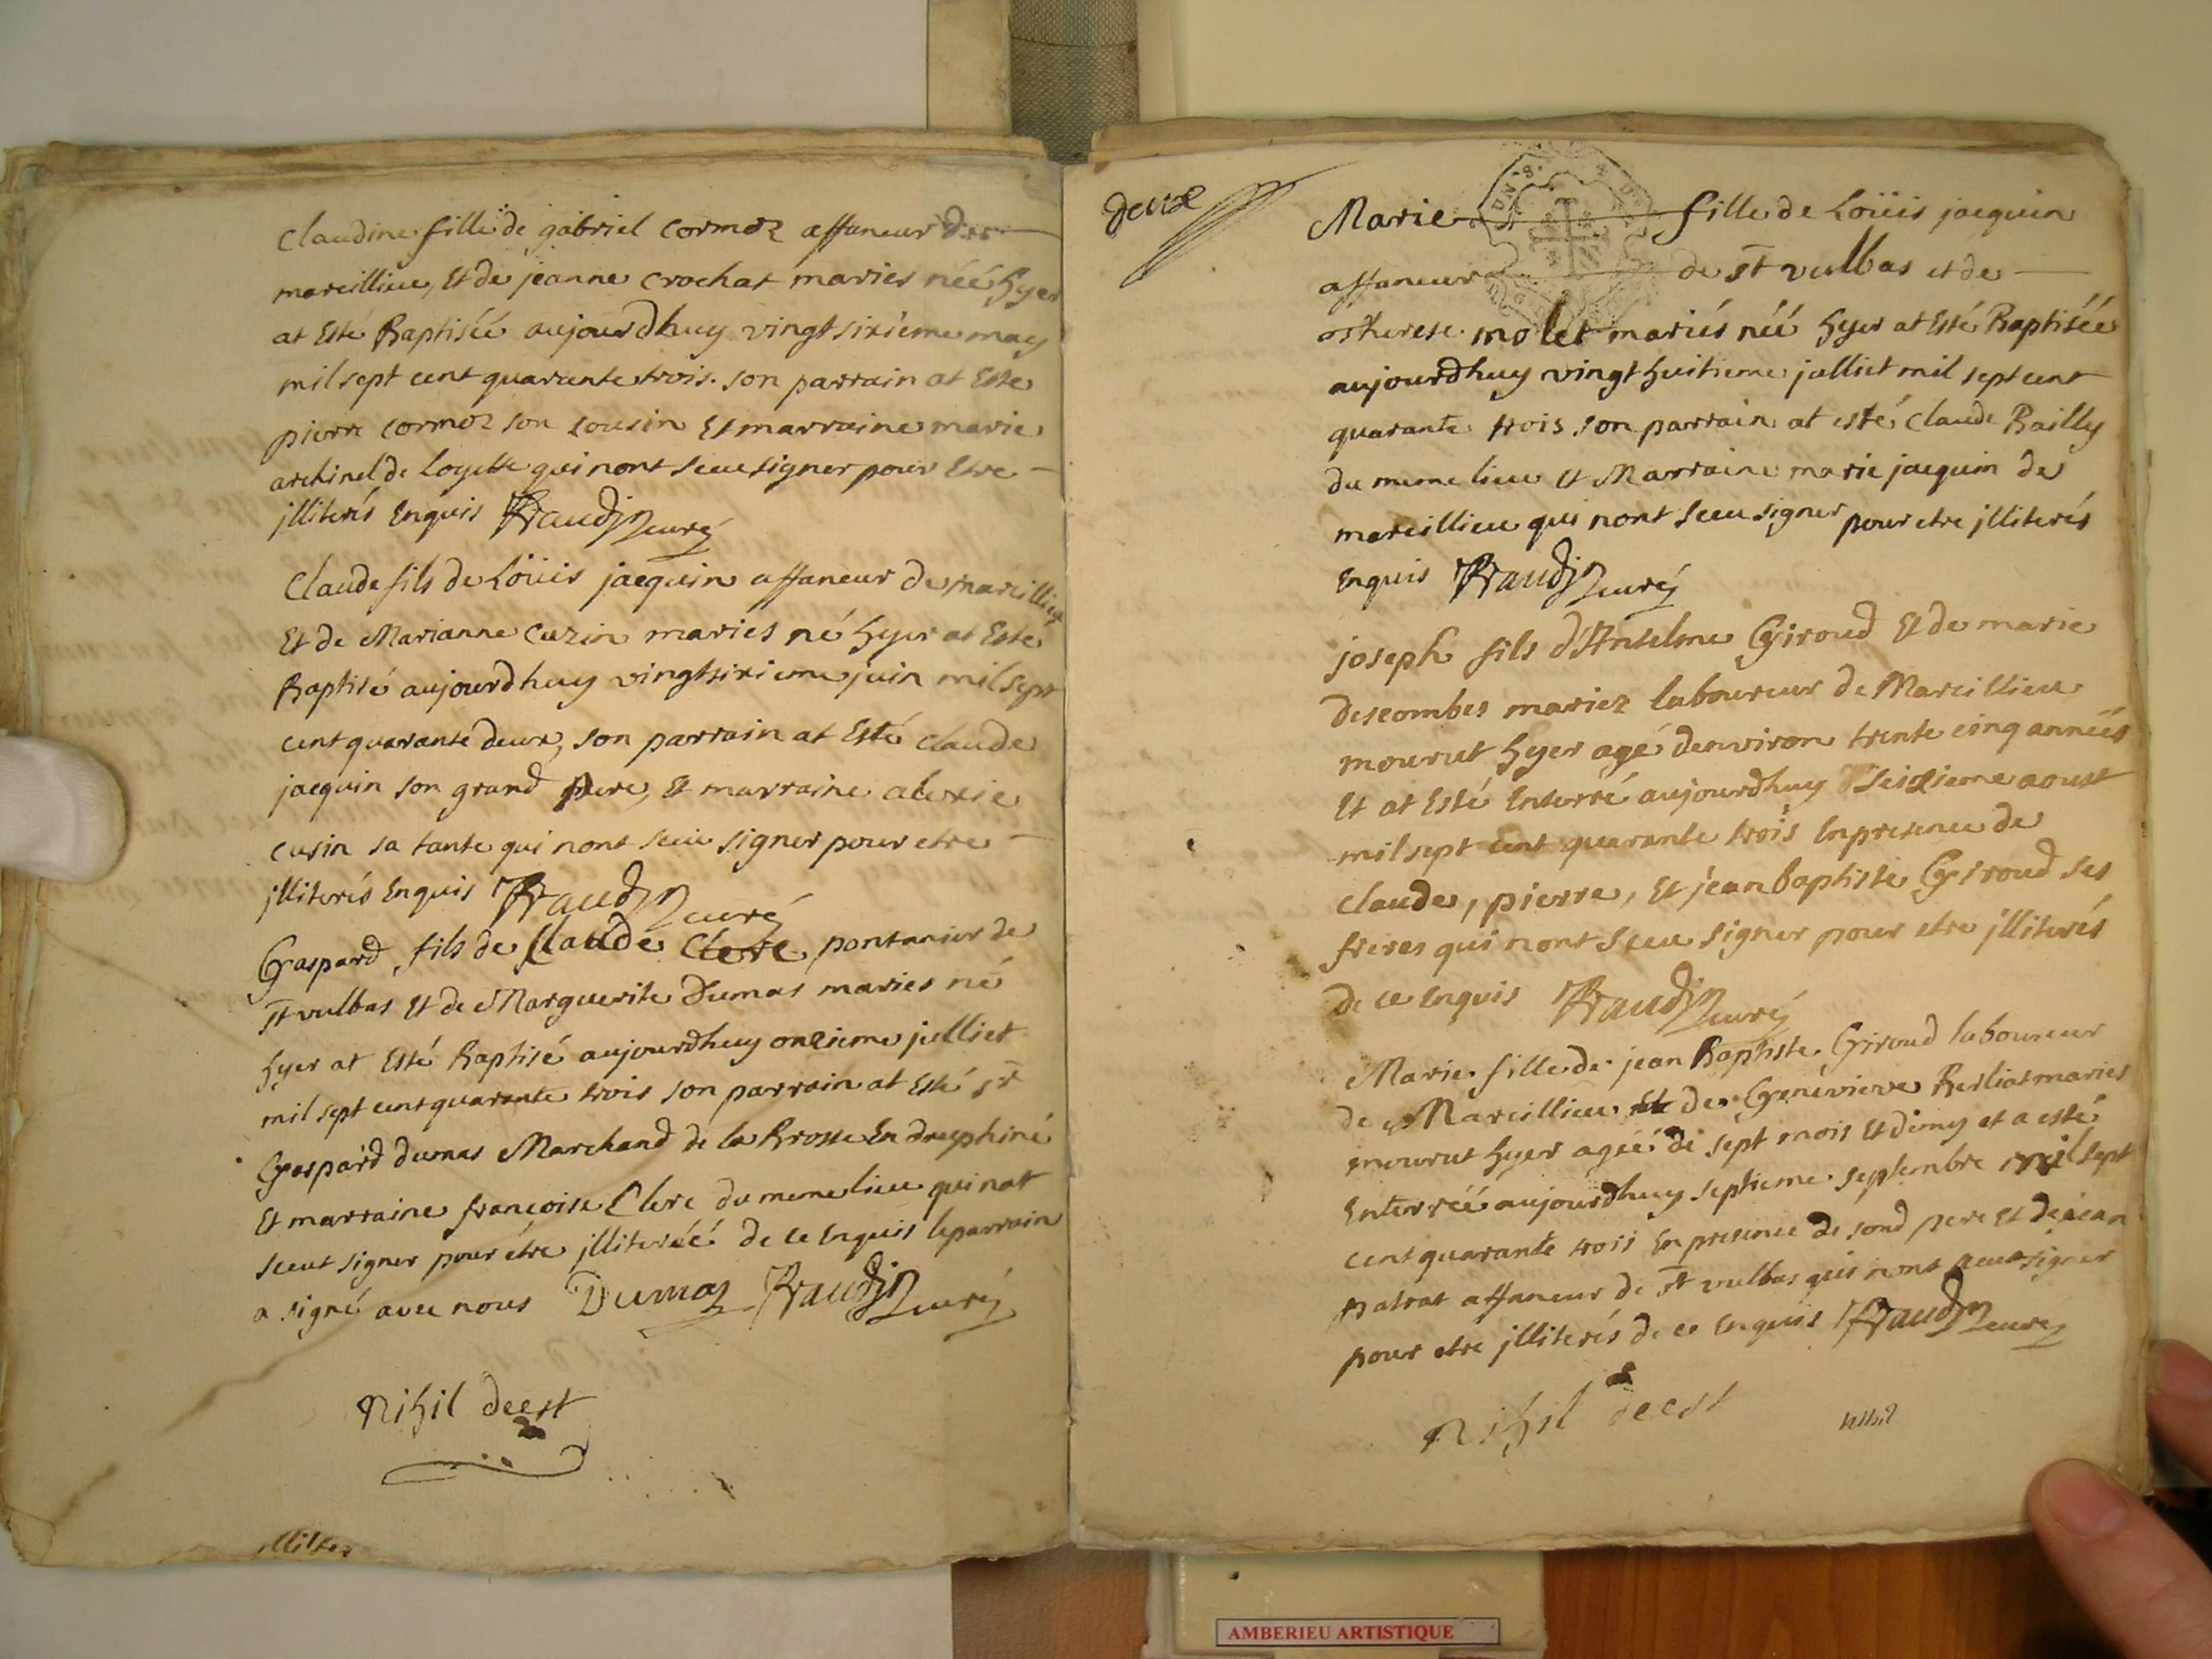 Claudine fille de gabriel cormoz affaneur de
marcillieu, Et de jeanne crochat maries néé hyer
at Esté Baptiséé aujourdhuy vingt sixieme may
mil sept cent quarante trois. son parrain at Este
pierre cormoz son cousin Et marraine marie
archinel de Loyette qui nont sceu signer pour Etre
jlliterés Enquis Braudin curé
Claude fils de Loüis jacquin affaneur de marcillieu
Et de Marianne Cuzin maries né hyer at Esté
Baptisé aujourdhuy vingt sixieme juin mil sept
cent quarante deux, son parrain at Esté claude
jacquin son grand pere, Et marraine alexie
cusin sa tante qui nont sceu signer pour etre
jlliterés Enquis Braudin curé
Gaspard, fils de Claude Clerc pontanier de
St vulbas Et de Marguerite Dumas maries né
hyer at Esté Baptisé aujourdhuy onzieme julliet
mil sept cent quarante trois son parrain at Esté sr
Gaspard dumas Marchand de la Brosse En dauphiné
Et marraine françoise Clerc du meme lieu qui nat
sceut signer pour étre jlliteréé de ce Enquis le parrain
a signé avec nous Dumas Braudin curé
Nihil deest
deux
Marie fille de Loüis jacquin
affaneur de St vulbas et de
therese molet mariés néé hyer at Esté Baptiséé
aujourdhuy vingt huitieme julliet mil sept cent
quarante trois son parrain at esté Claude Bailly
du meme lieu Et Marraine marie jacquin de
marcillieu qui nont sceu signer pour etre jlliterés
Enquis Braudin curé
joseph fils d'Antelme Giroud Et de marie
descombes mariez laboureur de Marcillieu
mourut hyer agé denviron trente cinq annéés
Et at Esté Enterré aujourdhuy seizieme aoust
mil sept cent quarante trois Enpresence de
claude, pierre, Et jean baptiste Giroud ses
freres qui nont sceu signer pour etre jlliterés
de ce Enquis Braudin curé
Marie fille de jean Baptiste Giroud laboureur
de Marcillieu Et de Genevieve Berliat maries
mourut hyer agéé de sept mois Et demy et a esté
Enterréé aujourdhuy septieme septembre mil sept
cent quarante trois En presence de sond pere Et de jean
patrat affaneur de St vulbas qui nont sceu signer
pour etre jlliterés de ce Enquis Braudin curé
Nihil deest
nihil
AMBERIEU ARTISTIQUE